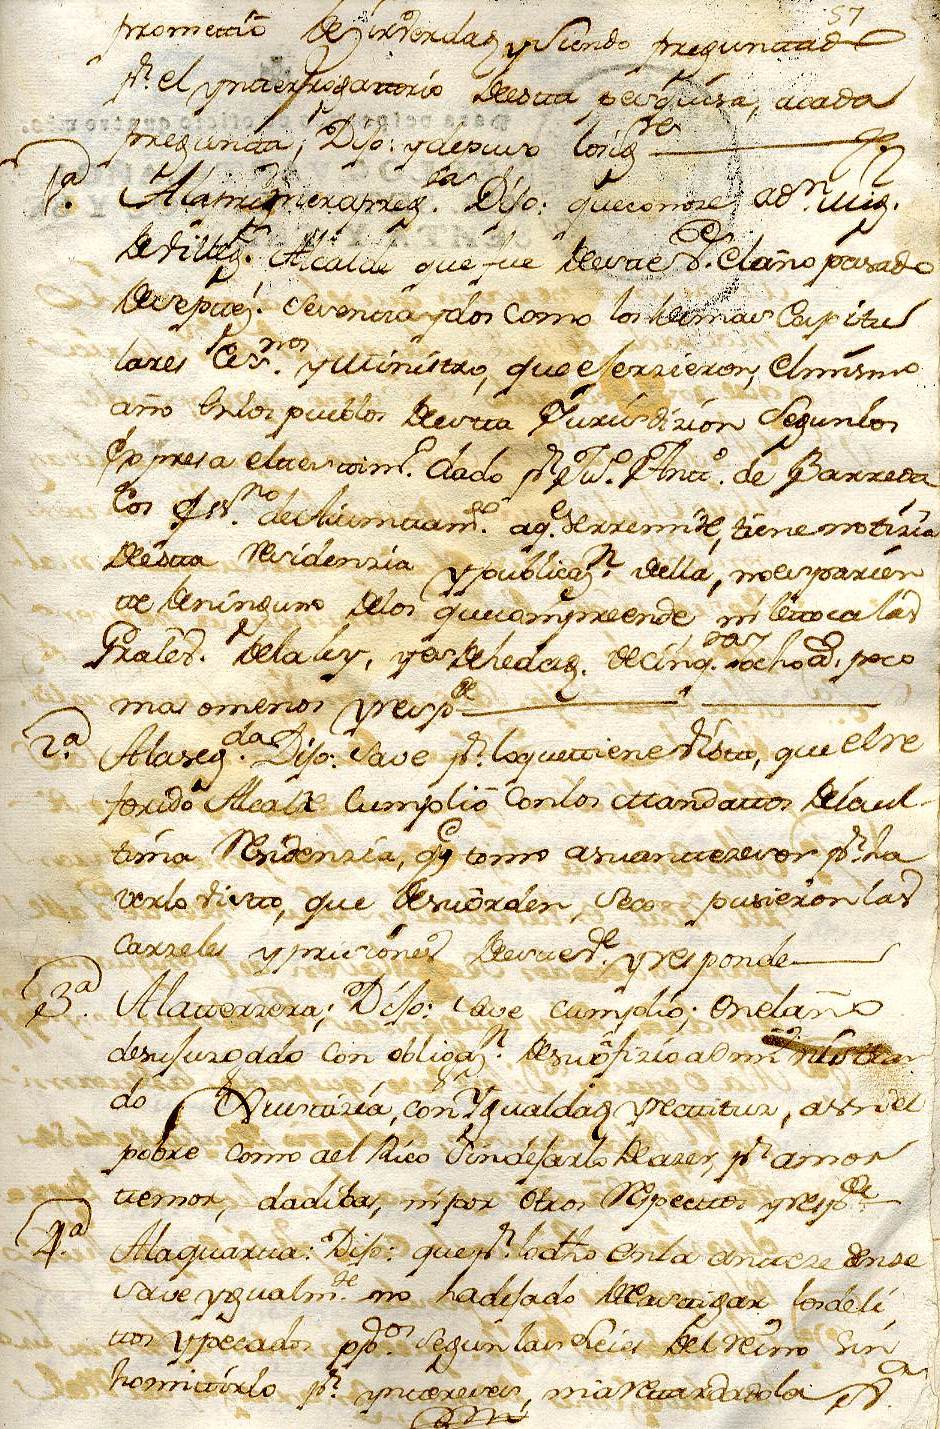 57
prometio dezir verdad, y siendo preguntado
pr. el ynterrogatorio desta pesquisa, acada
pregunta, Dijo: y depuso lo sigte
1a. Ala primera preg.ta Dijo: que conose a Dn. Mig.
de Alcalde que fue deste el año pasado
de septe. sesenta y dos como los demas Capitu
lares Ess.nos y Ministro, que ejerzieron, el mismo
año en los pueblos desta Jurisdizion segun los
Expresa el testim.o dado pr. Antto. de Barreda
Ess.no de Aiuntam.to aq.e se rremite, tiene notizia
desta Residenzia y publicaz.n della, no es parien
te de ninguno delos que compreende ni le toca las
Grales. dela ley, y es de hedad de cinq.ta y ocho a.s poco
mas o menos y resp.de
2a. Ala seg.da Dijo: save pr. lo que tiene visto, que el re
ferido Alcalde cumplio con los mandattos dela ul
tima Residenzia, que tomo a su antezesor pr. ha
verlo visto, que de su orden se pusieron las
carzeles y prisiones y responde
3a. Ala terzera; Dijo: save cumplio; en el año
de su juzgado con obligaz.n de su ofizio administran
do Justizia, con ygualdad y rectitud, assi el
pobre como ael Rico sin dejarlo de azer, pr. amor
temor, dadibas, ni por otros Respectos y resp.de
4a. Ala quarta: Dijo: que pr. lo dho en la antezedense
save ygualm.te no ha dejado de castigar los deli
tos y pecados pp.cos segun las Leies del reino sin
homitirlo pr. yntereses, ni a retardado la